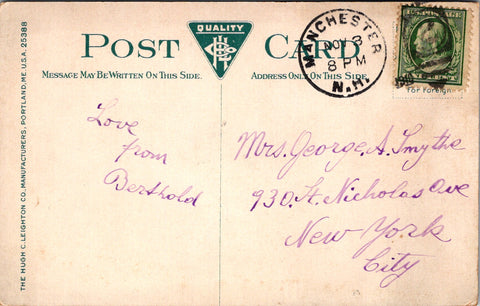 QUALITY
POST CARD
MESSAGE MAY BE WRITTEN ON THIS SIDE. ADDRESS ONLY ON THIS SIDE.
MANCHESTER
NOV 3
8 PM
N.H.
For Foreign
Love
from
Berthold
Mrs. George. A. Smythe
930. St. Nicholas Ave
New York
City
THE HUGH C. LEIGHTON CO., MANUFACTURERS, PORTLAND, ME. U.S.A. 25388